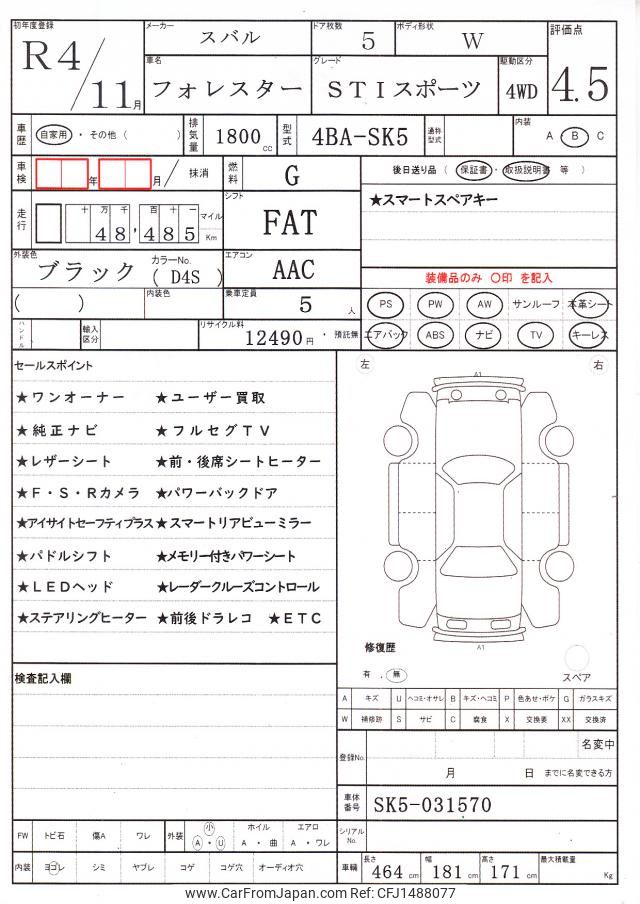 初年度登録 メーカー スバル ドア枚数 5 ボディ形状 W 評価点
R4/11月 車名 フォレスター グレード STIスポーツ 駆動区分 4WD 4.5
車歴 自家用 ・ その他 ( ) 排気量 1800 cc 型式 4BA-SK5 通称型式 内装 A ・ B C
車検 年 月 / 抹消 燃料 G 後日送り品 ( 保証書 ・ 取扱説明書 等 )
走行 十 万 千 百 十 一 48,485 マイル Km シフト FAT ★スマートスペアキー
外装色 ブラック カラーNo. ( D4S ) エアコン AAC 装備品のみ 〇印 を記入
( ) 内装色 乗車定員 5 人 PS PW AW サンルーフ 本革シート
ハンドル 輸入区分 リサイクル料 12490 円 ・ 預託無 エアバック ABS ナビ TV キーレス
セールスポイント
★ワンオーナー ★ユーザー買取
★純正ナビ ★フルセグTV
★レザーシート ★前・後席シートヒーター
★F・S・Rカメラ ★パワーバックドア
★アイサイトセーフティプラス ★スマートリアビューミラー
★パドルシフト ★メモリー付きパワーシート
★LEDヘッド ★レーダークルーズコントロール
★ステアリングヒーター ★前後ドラレコ ★ETC
左 右
A1
A1
修復歴
有 . 無
スペア
検査記入欄
A キズ U ヘコミ・オサレ B キズ・ヘコミ P 色あせ・ボケ G ガラスキズ
W 補修跡 S サビ C 腐食 X 交換要 XX 交換済
登録No. 名変中
月 日 までに名変できる方
車体番号 SK5-031570
シリアルNo.
FW トビ石 傷A ワレ 外装 小 A ・ U ホイル A ・ 曲 エアロ A ・ ワレ
内装 ヨゴレ シミ ヤブレ コゲ コゲ穴 オーディオ穴
車輌 長さ 464 cm 幅 181 cm 高さ 171 cm 最大積載量 Kg
www.CarFromJapan.com Ref: CFJ1488077